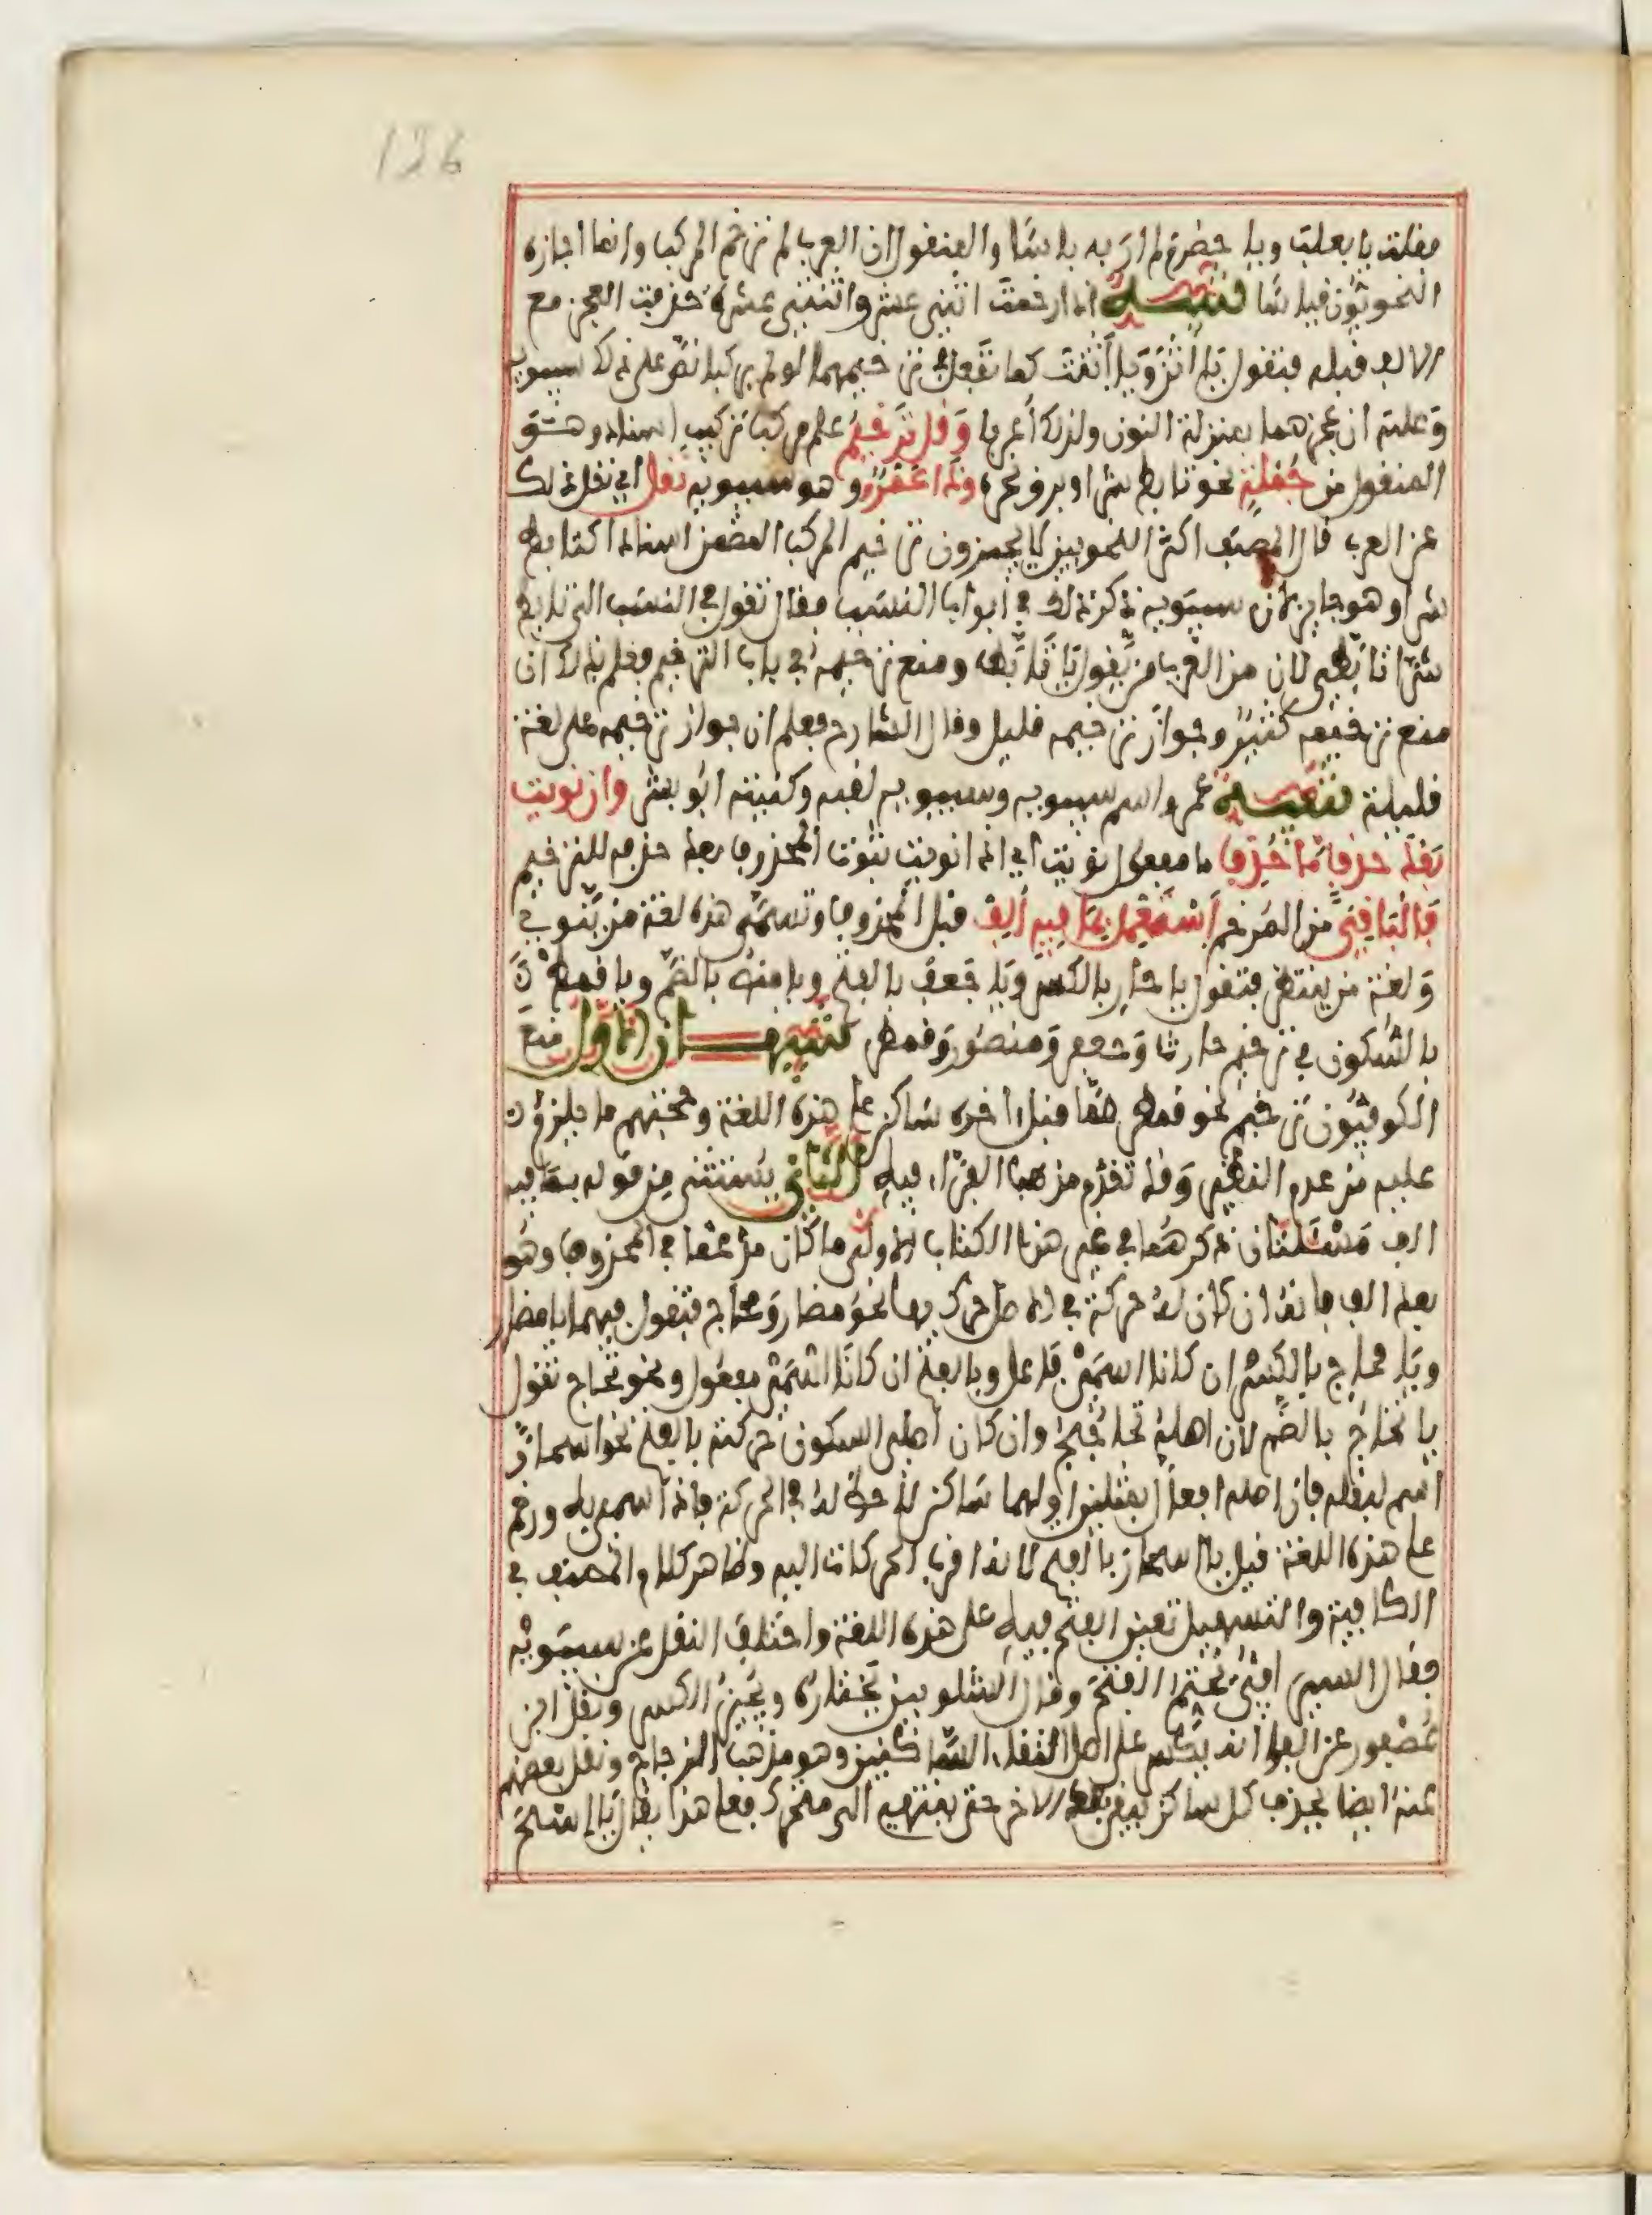 126
فقلت يا بعلب ويا حضرم لم ار به باسا والمنقول ان العرب لم ترخم المركب وانما اجازه
النحويون قياسا تنبيه اذا رخمت اثني عشر واثنتي عشرة حذفت العجز مع
الالف قبله فتقول يا اثن ويا اثنت كما تفعل في ترخيمهما لو لم يركبا نص على ذلك سيبويه
وعلته ان عجزهما بمنزلة النون ولذلك اعربا وقل ترخيم علم مركب تركيب اسناد وهو
المنقول من جملة نحو تابط شرا وبرق نحره وذا عمرو وهو سيبويه نقل اي نقل ذلك
عن العرب قال المصنف اكثر النحويين لا يجيزون ترخيم المركب المضمن اسنادا كتابط
شرا وهو جايز لان سيبويه ذكر ذلك في ابواب النسب فقال تقول في النسب الى تابط
شرا تابطي لان من العرب من يقول يا تابط ومنع ترخيمه في باب الترخيم فعلم بذلك ان
منع ترخيمه كثير وجواز ترخيمه قليل وقال الشارح فعلم ان جواز ترخيمه على لغة
قليلة تنبيه عمرو اسم سيبويه وسيبويه لقبه وكنيته ابو بشر وان نويت
بعد حذف ما حذف ما مفعول نويت اي اذا نويت ثبوت المحذوف بعد حذفه للترخيم
فالباقي من المرخم استعمل بما فيه الف قبل المحذوف وتسمى هذه لغة من ينوي
ولغة من ينتظر فتقول يا حار بالكسر ويا جعف بالفتح ويا منص بالضم ويا قمط
بالسكون في ترخيم حارث وجعفر ومنصور وقمطر تنبيهان الاول منع
الكوفيون ترخيم نحو قمطر مما قبل اخره ساكن على هذه اللغة وحجتهم ما يلزم
عليه من عدم النظير وقد تقدم مذهب الفراء فيه الثاني يستثنى من قوله بما فيه
الف مسئلتان ذكرهما في غير هذا الكتاب الاولى ما كان مدغما في المحذوف وهو
بعد الف فانه ان كان له حركة في الاصل حركته بها نحو مضار ومحاج فتقول فيهما يا مضار
ويا محاج بالكسر ان كانا اسمي فاعل وبالفتح ان كانا اسمي مفعول ونحو تحاج تقول
يا تحاج بالضم لان اصله تحاجج وان كان اصلي السكون حركته بالفتح نحو اسحار
اسم لبقلة فان اصله افعال بمثلين اولهما ساكن لا حظ له في الحركة فاذا سمي به ورخم
على هذه اللغة قيل يا اسحار بالفتح لانه اقرب الحركات اليه وظاهر كلام المصنف في
الكافية والتسهيل تعين الفتح فيه على هذه اللغة واختلف النقل عن سيبويه
فقال السيرافي يحتم الفتح وقال الشلوبين يختاره ويجيز الكسر ونقل ابن
عصفور عن الفراء انه يكسر على اصل التقاء الساكنين وهو مذهب الزجاج ونقل بعضهم
عنه ايضا يحذف كل ساكن يبقى بعد الاخر حتى ينتهي الى متحرك فعلى هذا يقال يا اسح